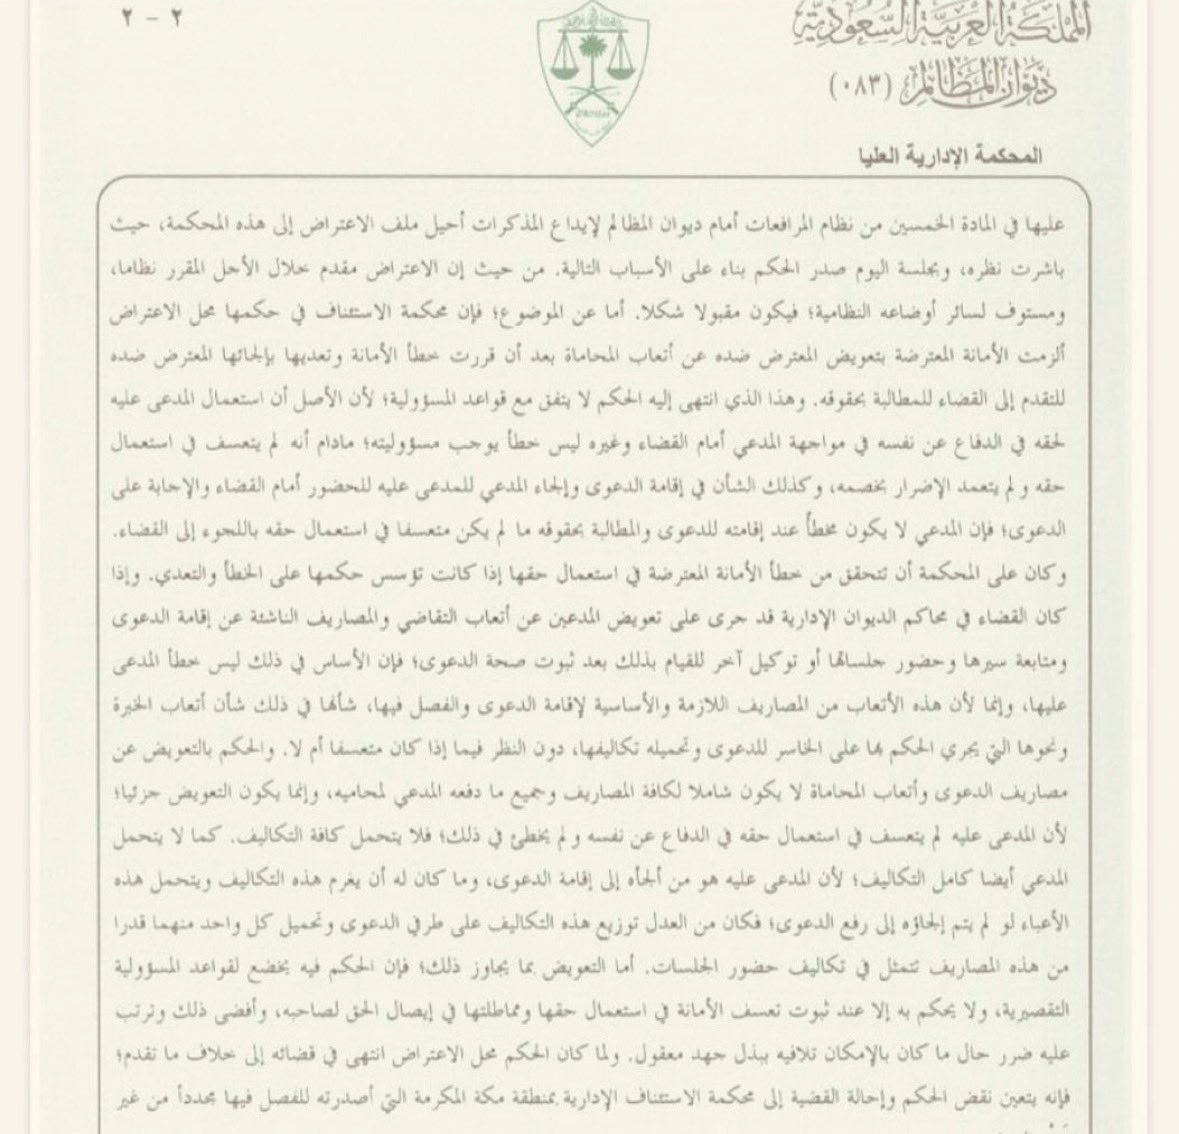 ٢ - ٢
المملكة العربية السعودية
ديوان المظالم (٠٨٣)
المحكمة الإدارية العليا
عليها في المادة الخمسين من نظام المرافعات أمام ديوان المظالم لإيداع المذكرات أحيل ملف الاعتراض إلى هذه المحكمة، حيث
باشرت نظره، وبجلسة اليوم صدر الحكم بناء على الأسباب التالية. من حيث إن الاعتراض مقدم خلال الأجل المقرر نظاما،
ومستوف لسائر أوضاعه النظامية؛ فيكون مقبولا شكلا. أما عن الموضوع؛ فإن محكمة الاستئناف في حكمها محل الاعتراض
ألزمت الأمانة المعترضة بتعويض المعترض ضده عن أتعاب المحاماة بعد أن قررت خطأ الأمانة وتعديها بإلجائها المعترض ضده
للتقدم إلى القضاء للمطالبة بحقوقه. وهذا الذي انتهى إليه الحكم لا يتفق مع قواعد المسؤولية؛ لأن الأصل أن استعمال المدعى عليه
لحقه في الدفاع عن نفسه في مواجهة المدعي أمام القضاء وغيره ليس خطأ يوجب مسؤوليته؛ مادام أنه لم يتعسف في استعمال
حقه ولم يتعمد الإضرار بخصمه، وكذلك الشأن في إقامة الدعوى وإلجاء المدعي للمدعى عليه للحضور أمام القضاء والإجابة على
الدعوى؛ فإن المدعي لا يكون مخطأً عند إقامته للدعوى والمطالبة بحقوقه ما لم يكن متعسفا في استعمال حقه باللجوء إلى القضاء.
وكان على المحكمة أن تتحقق من خطأ الأمانة المعترضة في استعمال حقها إذا كانت تؤسس حكمها على الخطأ والتعدي. وإذا
كان القضاء في محاكم الديوان الإدارية قد جرى على تعويض المدعين عن أتعاب التقاضي والمصاريف الناشئة عن إقامة الدعوى
ومتابعة سيرها وحضور جلساتها أو توكيل آخر للقيام بذلك بعد ثبوت صحة الدعوى؛ فإن الأساس في ذلك ليس خطأ المدعى
عليها، وإنما لأن هذه الأتعاب من المصاريف اللازمة والأساسية لإقامة الدعوى والفصل فيها، شأنها في ذلك شأن أتعاب الخبرة
ونحوها التي يجري الحكم بها على الخاسر للدعوى وتحميله تكاليفها، دون النظر فيما إذا كان متعسفا أم لا. والحكم بالتعويض عن
مصاريف الدعوى وأتعاب المحاماة لا يكون شاملا لكافة المصاريف وجميع ما دفعه المدعي لمحاميه، وإنما يكون التعويض جزئيا؛
لأن المدعى عليه لم يتعسف في استعمال حقه في الدفاع عن نفسه ولم يخطئ في ذلك؛ فلا يتحمل كافة التكاليف. كما لا يتحمل
المدعي أيضا كامل التكاليف؛ لأن المدعى عليه هو من ألجأه إلى إقامة الدعوى، وما كان له أن يغرم هذه التكاليف ويتحمل هذه
الأعباء لو لم يتم إلجاؤه إلى رفع الدعوى؛ فكان من العدل توزيع هذه التكاليف على طرفي الدعوى وتحميل كل واحد منهما قدرا
من هذه المصاريف تتمثل في تكاليف حضور الجلسات. أما التعويض بما يجاوز ذلك؛ فإن الحكم فيه يخضع لقواعد المسؤولية
التقصيرية، ولا يحكم به إلا عند ثبوت تعسف الأمانة في استعمال حقها ومماطلتها في إيصال الحق لصاحبه، وأفضى ذلك وترتب
عليه ضرر حال ما كان بالإمكان تلافيه ببذل جهد معقول. ولما كان الحكم محل الاعتراض انتهى في قضائه إلى خلاف ما تقدم؛
فإنه يتعين نقض الحكم وإحالة القضية إلى محكمة الاستئناف الإدارية بمنطقة مكة المكرمة التي أصدرته للفصل فيها مجدداً من غير